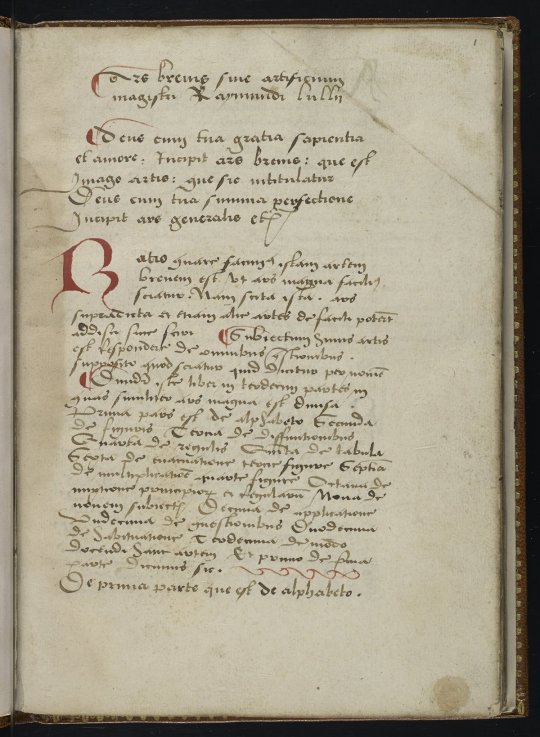 1
Ars brevis sive artificium
magistri Raymundi lullii
Deus cum tua gratia sapientia
et amore: Incipit ars brevis: que est
Imago artis: que sic intitulatur
Deus cum tua summa perfectione
Incipit ars generalis etc
Ratio quare facimus istam artem
brevem est. Ut ars magna facilius
sciatur. Nam scita ista. ars
supradicta et etiam alie artes de facili poterunt
addisci sive sciri Subiectum huius artis
est Respondere de omnibus questionibus.
supposito quod sciatur quid dicitur per nomen
Dividitur iste liber in tredecim partes in
quas similiter ars magna est divisa.
Prima pars est de alphabeto Secunda
de figuris Tercia de diffinitionibus
Quarta de regulis Quinta de tabula
Sexta de evacuatione tercie figure Septima
de multiplicatione quarte figure Octava de
mixtione principiorum et regularum Nona de
novem subiectis Decima de applicatione
Undecima de questionibus Duodecima
de habituatione Tredecima de modo
docendi hanc artem Et primo de prima
parte dicimus sic.
De prima parte que est de alphabeto.